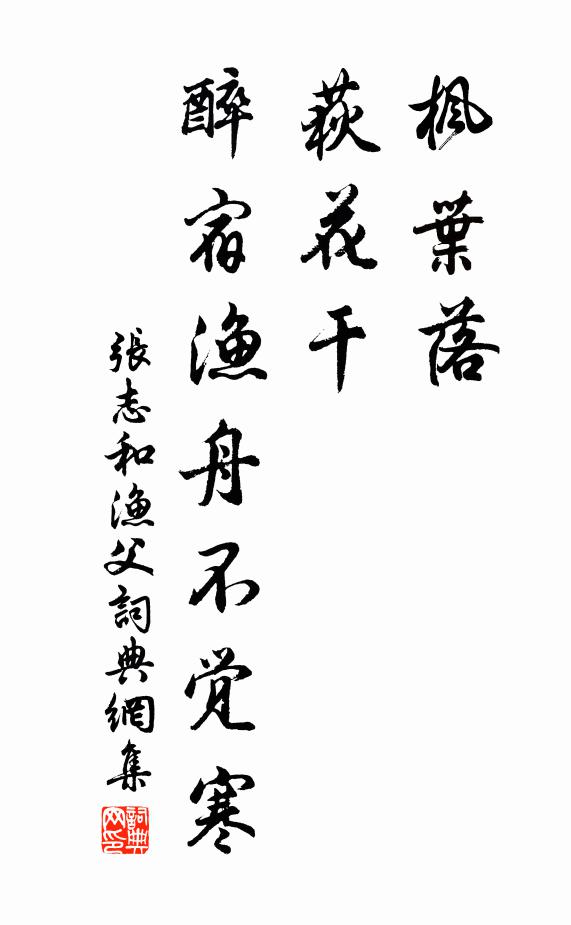 楓葉落
荻花干
醉宿漁舟不覚寒
張志和漁父詞典網集
詞典网印